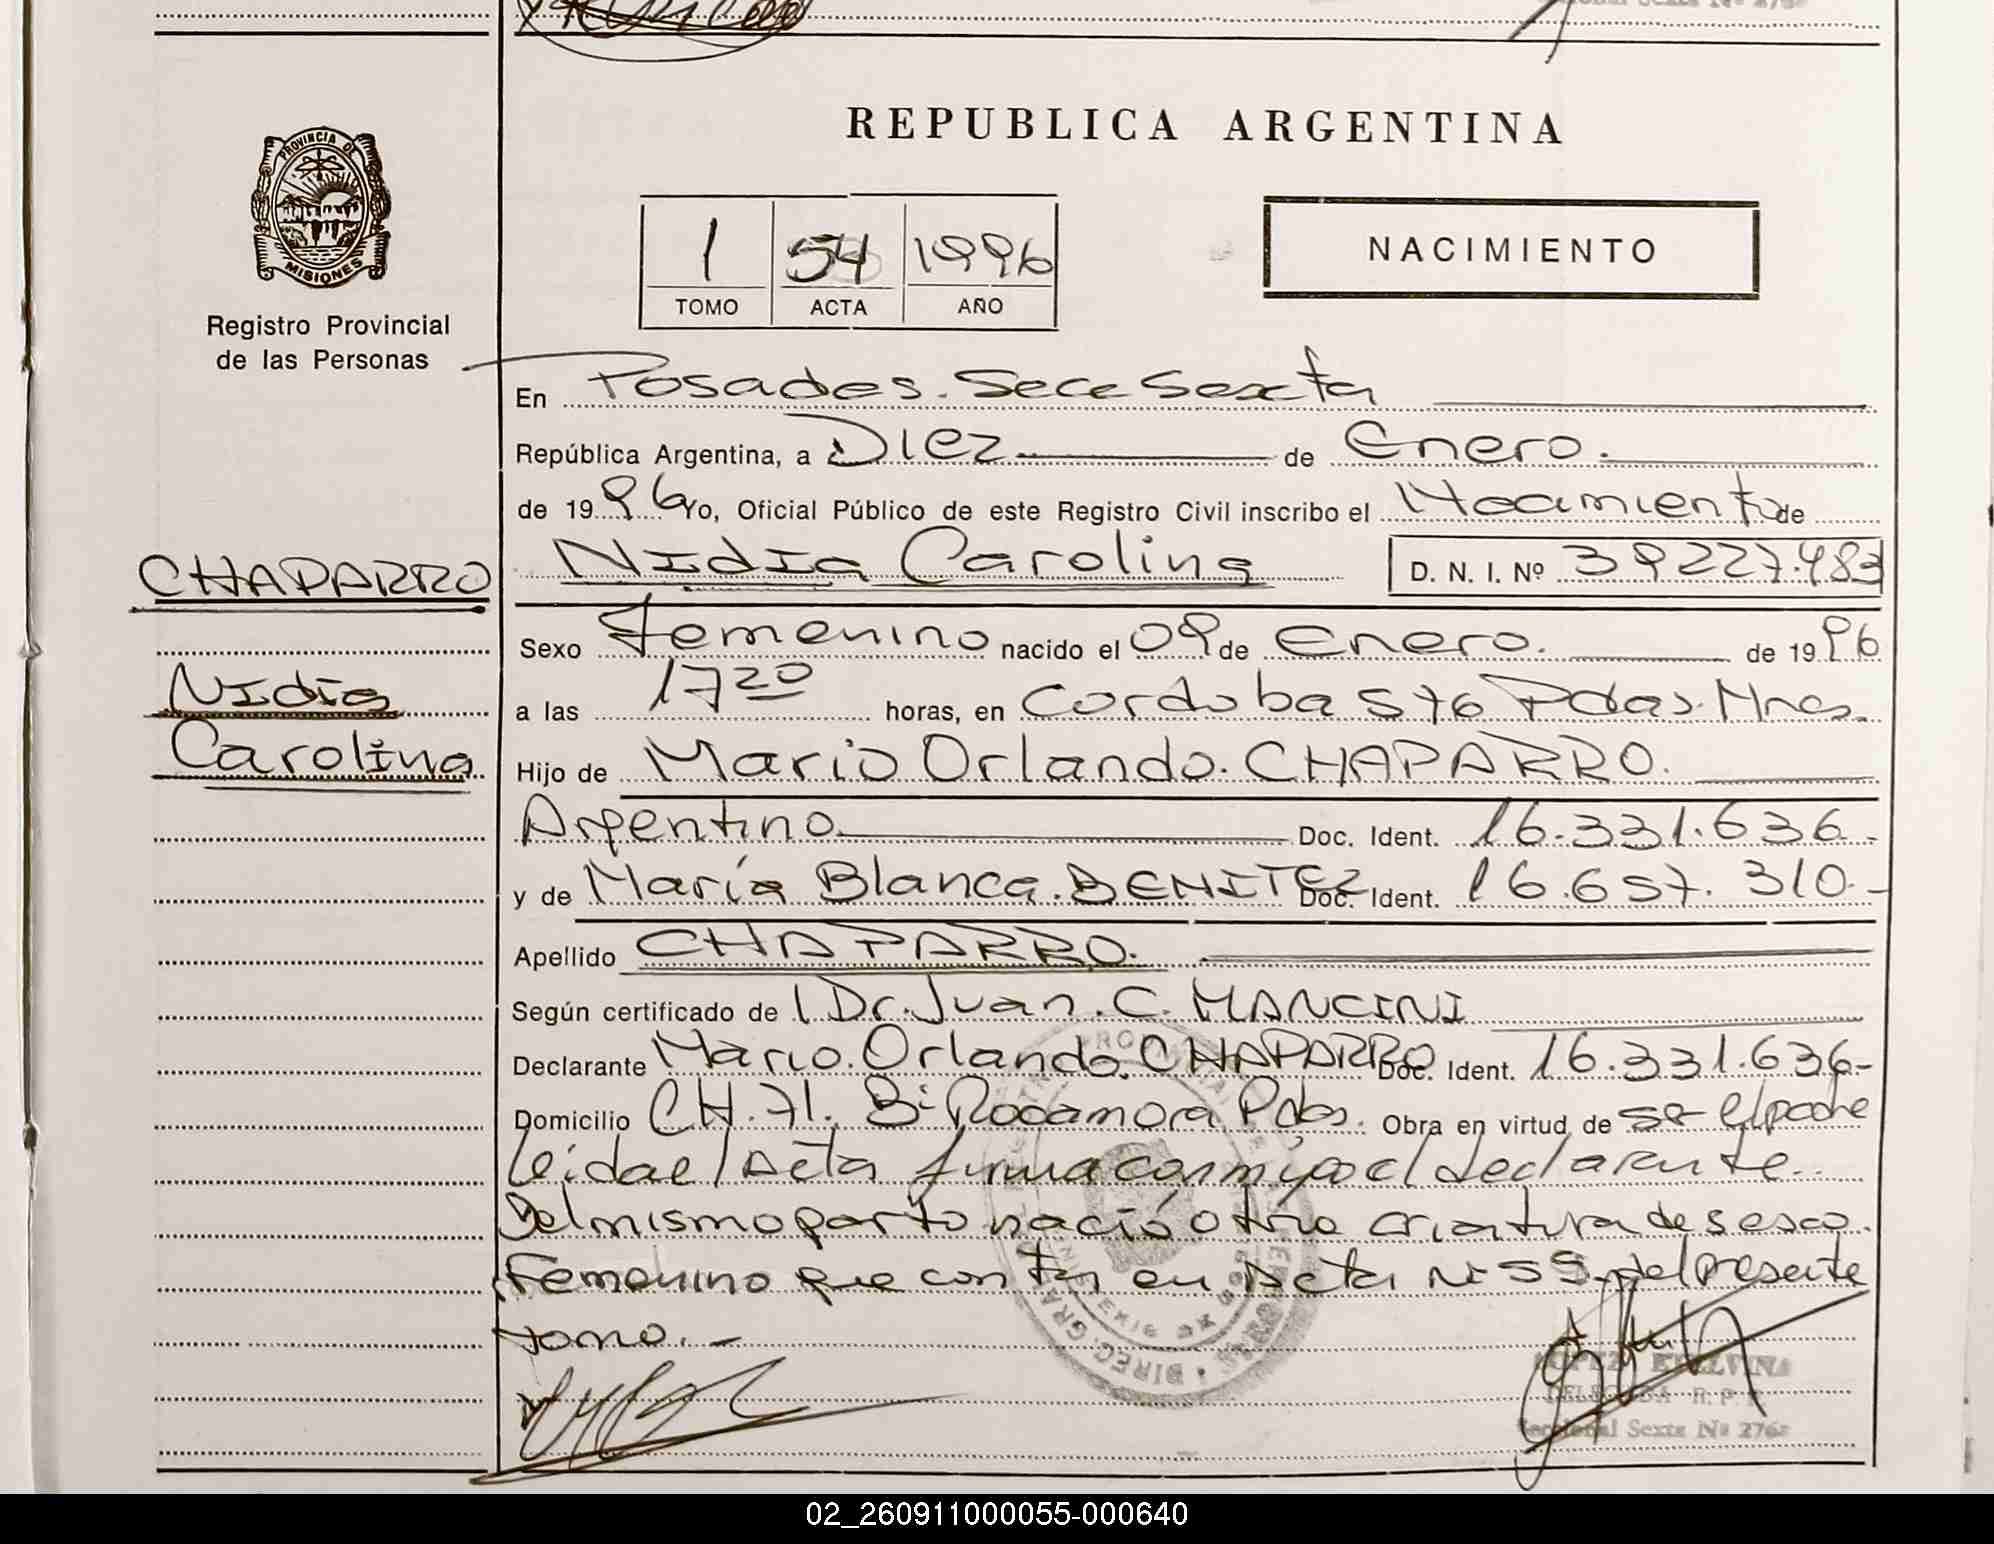 REPUBLICA ARGENTINA
PROVINCIA DE
MISIONES
Registro Provincial
de las Personas
1 54 1996
TOMO ACTA AÑO
NACIMIENTO
En Posadas. Secc Sexta
República Argentina, a Diez de Enero.
de 1996 Yo, Oficial Público de este Registro Civil inscribo el Nacimiento de
CHAPARRO
Nidia Carolina D. N. I. Nº 39227.483
Sexo Femenino nacido el 09 de Enero. de 1996
Nidia
a las 17 20 horas, en Cordoba 576 Pdas. Mnes.
Carolina
Hijo de Mario Orlando. CHAPARRO.
Argentino Doc. Ident. 16.331.636.-
y de María Blanca. BENITEZ Doc. Ident. 16.657.310.-
Apellido CHAPARRO.
Según certificado de Dr. Juan. C. MANCINI
Declarante Mario. Orlando. CHAPARRO Doc. Ident. 16.331.636-
Domicilio CH. 71. Bº Rocamora Pdas. Obra en virtud de ser el padre
leida el Acta firma conmigo el declarante.
Del mismo parto nació otra criatura de sexo
Femenino que consta en Acta Nº 55 del presente
tomo.-
LOPEZ ETELVINA
DELEGADA R. P. P.
Seccional Sexta Nº 2768
02_260911000055-000640